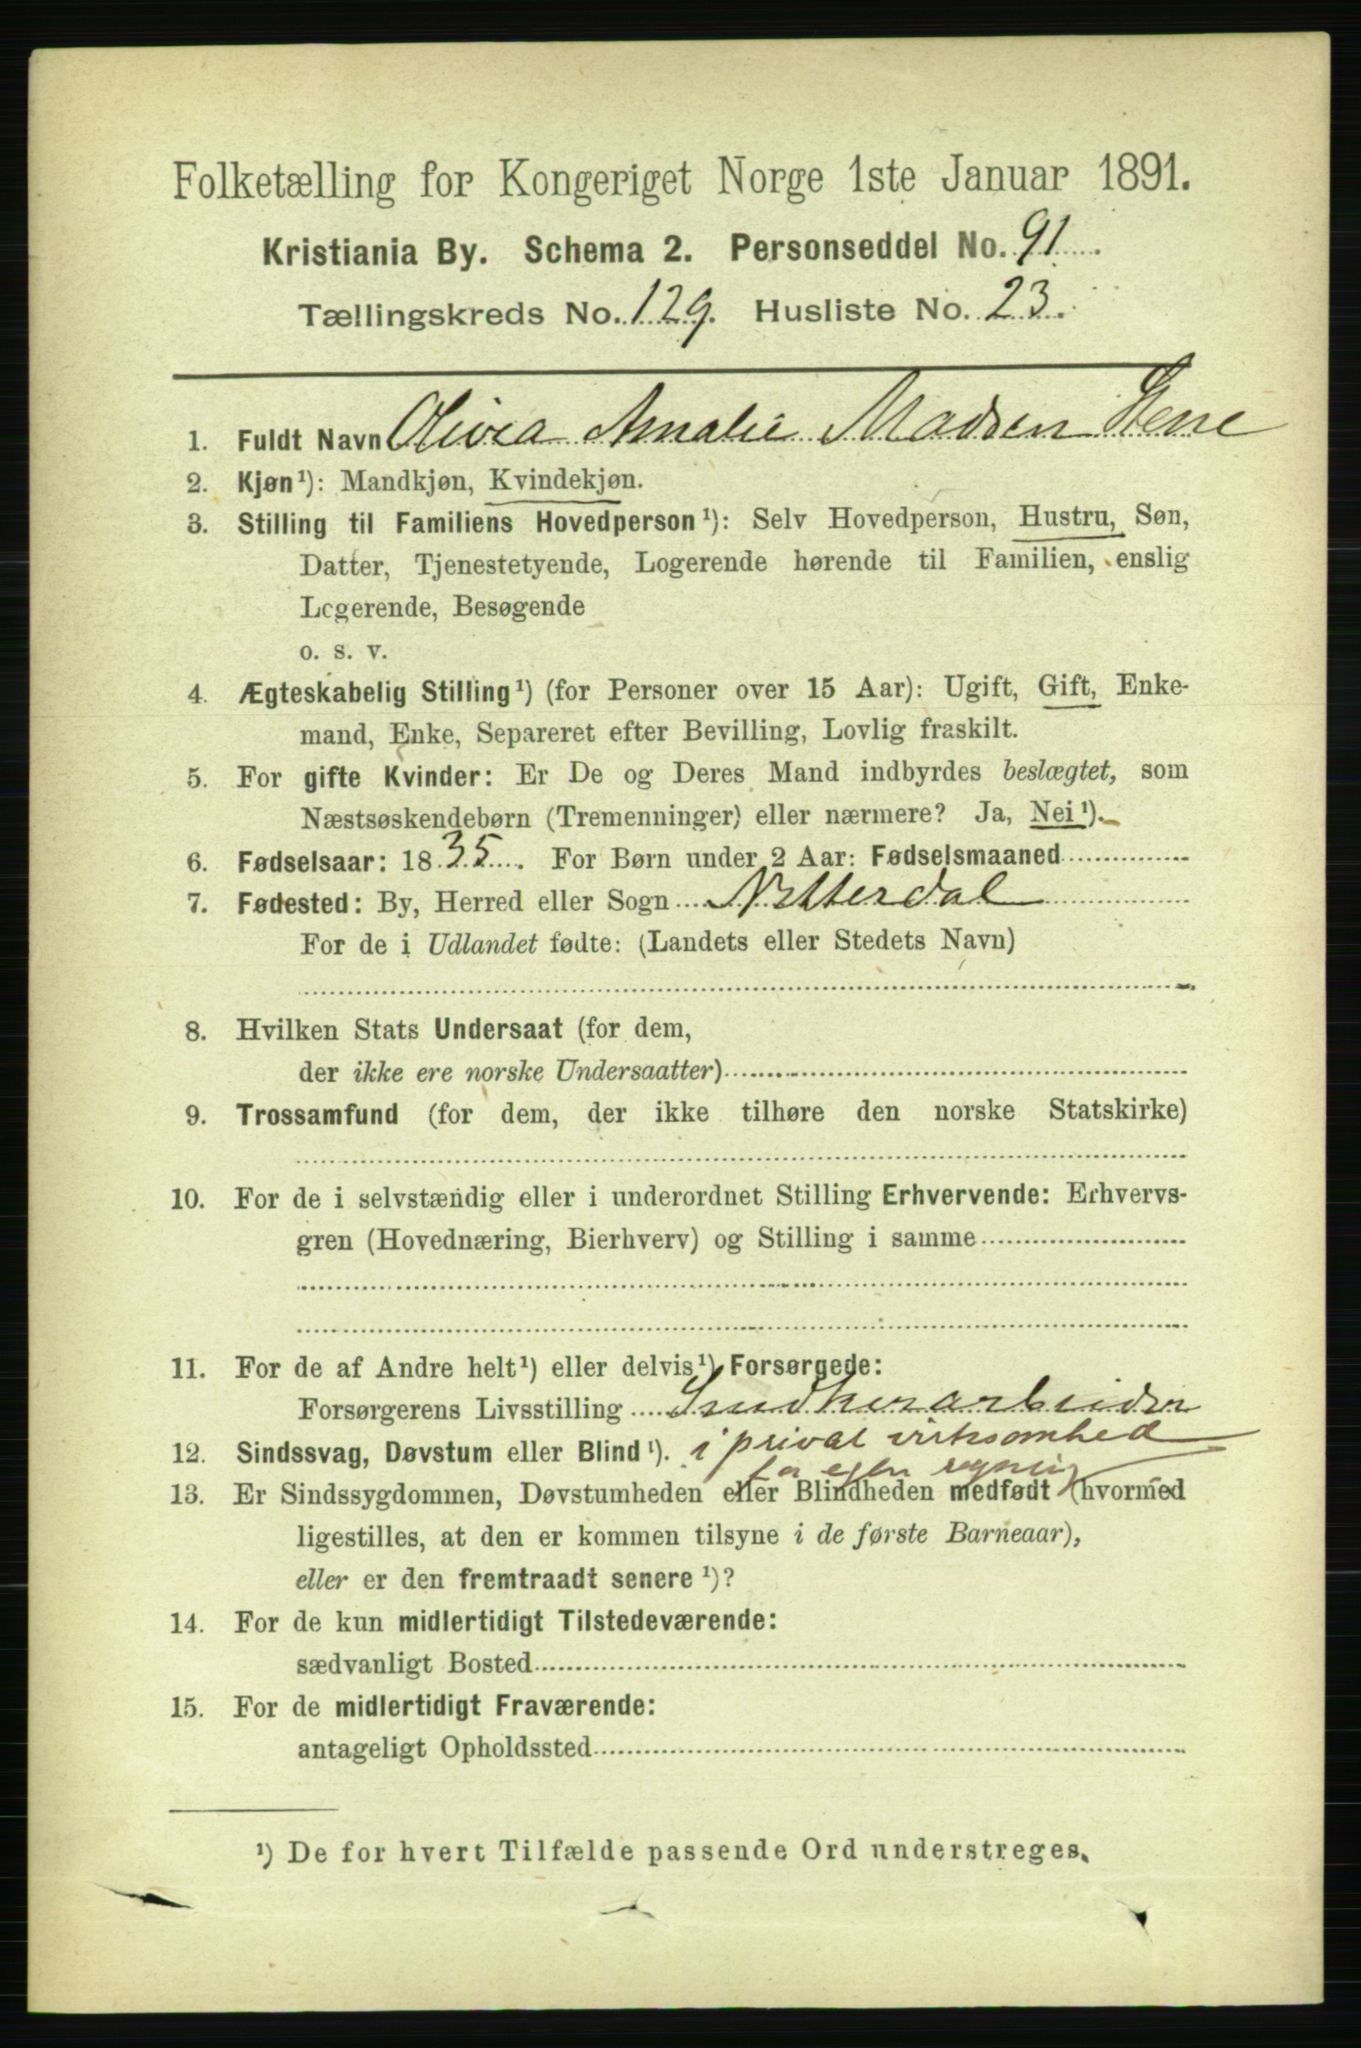 Folketælling for Kongeriget Norge 1ste Januar 1891.
Kristiania By. Schema 2. Personseddel No. 91
Tællingskreds No. 129. Husliste No. 23.
1. Fuldt Navn Olivia Amalie Madsen
2. Kjøn¹): Mandkjøn, Kvindekjøn.
3. Stilling til Familiens Hovedperson¹): Selv Hovedperson, Hustru, Søn,
Datter, Tjenestetyende, Logerende hørende til Familien, enslig
Logerende, Besøgende
o. s. v.
4. Ægteskabelig Stilling¹) (for Personer over 15 Aar): Ugift, Gift, Enke-
mand, Enke, Separeret efter Bevilling, Lovlig fraskilt.
5. For gifte Kvinder: Er De og Deres Mand indbyrdes beslægtet, som
Næstsøskendebørn (Tremenninger) eller nærmere? Ja, Nei¹).
6. Fødselsaar: 1835. For Børn under 2 Aar: Fødselsmaaned
7. Fødested: By, Herred eller Sogn Nittedal
For de i Udlandet fødte: (Landets eller Stedets Navn)
8. Hvilken Stats Undersaat (for dem,
der ikke ere norske Undersaatter)
9. Trossamfund (for dem, der ikke tilhøre den norske Statskirke)
10. For de i selvstændig eller i underordnet Stilling Erhvervende: Erhvervs-
gren (Hovednæring, Bierhverv) og Stilling i samme
11. For de af Andre helt¹) eller delvis¹) Forsørgede:
Forsørgerens Livsstilling Snedkerarbeider
12. Sindssvag, Døvstum eller Blind¹). i privat virksomhed
for egen regning
13. Er Sindssygdommen, Døvstumheden eller Blindheden medfødt (hvormed
ligestilles, at den er kommen tilsyne i de første Barneaar),
eller er den fremtraadt senere¹)?
14. For de kun midlertidigt Tilstedeværende:
sædvanligt Bosted
15. For de midlertidigt Fraværende:
antageligt Opholdssted
¹) De for hvert Tilfælde passende Ord understreges.